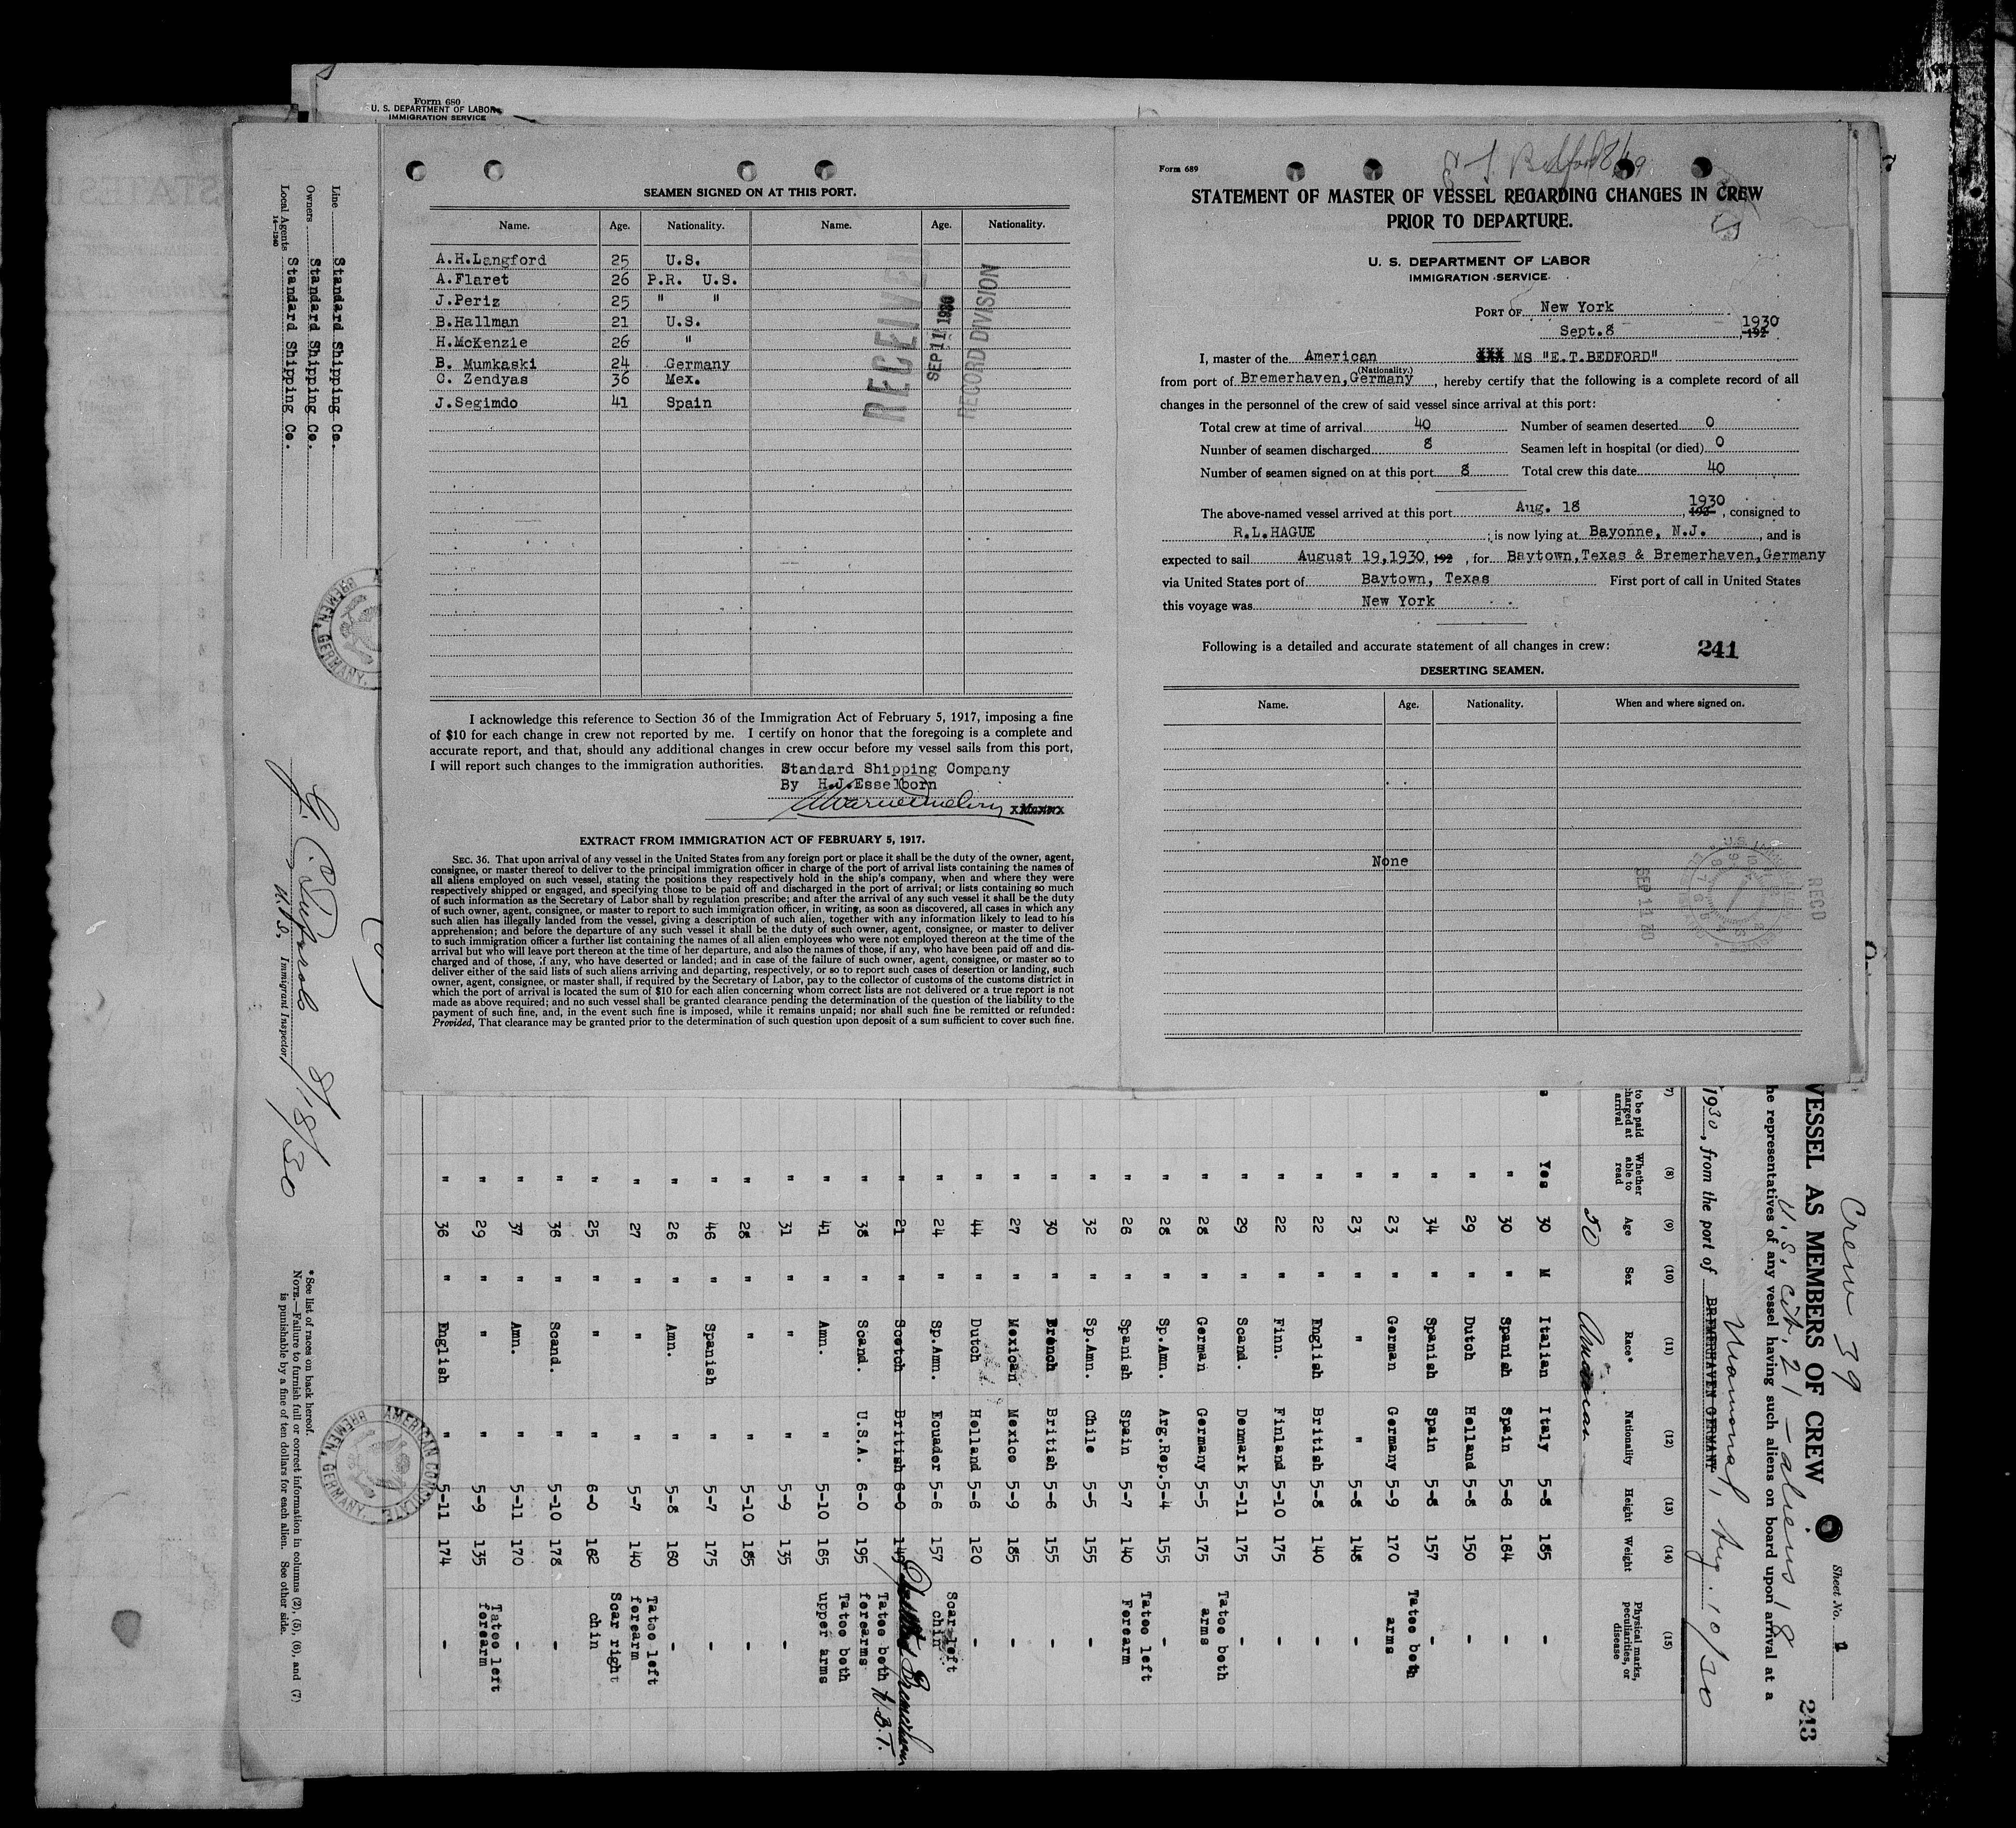 Form 680
U. S. DEPARTMENT OF LABOR
IMMIGRATION SERVICE
Line Standard Shipping Co.
Owners Standard Shipping Co.
Local Agents Standard Shipping Co.
14—1240
BREMEN, GERMANY.
8/18/30
Immigrant Inspector
* See list of races on back hereof.
NOTE.—Failure to furnish full or correct information in columns (2), (5), (6), and (7)
is punishable by a fine of ten dollars for each alien. See other side.
SEAMEN SIGNED ON AT THIS PORT.
Name. Age. Nationality. Name. Age. Nationality.
A.H.Langford 25 U.S.
A.Flaret 26 P.R. U.S.
J.Periz 25 " "
B.Hallman 21 U.S.
H.McKenzie 26 "
B. Mumkaski 24 Germany
C. Zendyas 36 Mex.
J.Segimdo 41 Spain
RECEIVED
SEP 11 1930
RECORD DIVISION
I acknowledge this reference to Section 36 of the Immigration Act of February 5, 1917, imposing a fine
of $10 for each change in crew not reported by me. I certify on honor that the foregoing is a complete and
accurate report, and that, should any additional changes in crew occur before my vessel sails from this port,
I will report such changes to the immigration authorities.
Standard Shipping Company
By H.J.Esselborn
EXTRACT FROM IMMIGRATION ACT OF FEBRUARY 5, 1917.
SEC. 36. That upon arrival of any vessel in the United States from any foreign port or place it shall be the duty of the owner, agent,
consignee, or master thereof to deliver to the principal immigration officer in charge of the port of arrival lists containing the names of
all aliens employed on such vessel, stating the positions they respectively hold in the ship's company, when and where they were
respectively shipped or engaged, and specifying those to be paid off and discharged in the port of arrival; or lists containing so much
of such information as the Secretary of Labor shall by regulation prescribe; and after the arrival of any such vessel it shall be the duty
of such owner, agent, consignee, or master to report to such immigration officer, in writing, as soon as discovered, all cases in which any
such alien has illegally landed from the vessel, giving a description of such alien, together with any information likely to lead to his
apprehension; and before the departure of any such vessel it shall be the duty of such owner, agent, consignee, or master to deliver
to such immigration officer a further list containing the names of all alien employees who were not employed thereon at the time of the
arrival but who will leave port thereon at the time of her departure, and also the names of those, if any, who have been paid off and dis-
charged and of those, if any, who have deserted or landed; and in case of the failure of such owner, agent, consignee, or master so to
deliver either of the said lists of such aliens arriving and departing, respectively, or so to report such cases of desertion or landing, such
owner, agent, consignee, or master shall, if required by the Secretary of Labor, pay to the collector of customs of the customs district in
which the port of arrival is located the sum of $10 for each alien concerning whom correct lists are not delivered or a true report is not
made as above required; and no such vessel shall be granted clearance pending the determination of the question of the liability to the
payment of such fine, and, in the event such fine is imposed, while it remains unpaid; nor shall such fine be remitted or refunded:
Provided, That clearance may be granted prior to the determination of such question upon deposit of a sum sufficient to cover such fine.
Form 689
STATEMENT OF MASTER OF VESSEL REGARDING CHANGES IN CREW
PRIOR TO DEPARTURE.
U. S. DEPARTMENT OF LABOR
IMMIGRATION SERVICE
PORT OF New York
Sept.8 1930
192
I, master of the American XXX MS "E.T.BEDFORD"
(Nationality.)
from port of Bremerhaven,Germany, hereby certify that the following is a complete record of all
changes in the personnel of the crew of said vessel since arrival at this port:
Total crew at time of arrival 40 Number of seamen deserted 0
Number of seamen discharged 8 Seamen left in hospital (or died) 0
Number of seamen signed on at this port 8 Total crew this date 40
The above-named vessel arrived at this port Aug. 18, 1930 192 , consigned to
R.L.HAGUE ; is now lying at Bayonne, N.J. , and is
expected to sail August 19,1930, 192 , for Baytown,Texas & Bremerhaven,Germany
via United States port of Baytown, Texas First port of call in United States
this voyage was New York
Following is a detailed and accurate statement of all changes in crew: 241
DESERTING SEAMEN.
Name. Age. Nationality. When and where signed on.
None
SEP 11 30
REC'D
Crew 39
U.S. cit. 21 - aliens 18
Sheet No. 1
243
VESSEL AS MEMBERS OF CREW
he representatives of any vessel having such aliens on board upon arrival at a
1930, from the port of BREMERHAVEN GERMANY, Aug. 10/30
(7) to be paid charged at arrival (8) Whether able to read (9) Age (10) Sex (11) Race* (12) Nationality (13) Height (14) Weight (15) Physical marks, peculiarities, or disease
50 American
Yes 30 M Italian Italy 5-8 185 -
" 30 " Spanish Spain 5-6 164 -
" 29 " Dutch Holland 5-8 150 -
" 34 " Spanish Spain 5-8 157 -
" 23 " German Germany 5-9 170 Tatoo both arms
" 23 " " " 5-8 148 -
" 22 " English British 5-8 140 -
" 22 " Finn. Finland 5-10 175 -
" 29 " Scand. Denmark 5-11 175 -
" 28 " German Germany 5-5 175 Tatoo both arms
" 28 " Sp.Amn. Arg.Rep. 5-4 155 -
" 26 " Spanish Spain 5-7 140 Tatoo left Forearm
" 32 " Sp.Amn. Chile 5-5 155 -
" 30 " French British 5-6 155 -
" 27 " Mexican Mexico 5-9 185 -
" 44 " Dutch Holland 5-6 120 -
" 24 " Sp.Amn. Ecuador 5-6 157 Scar left chin
" 21 " Scotch British 6-0 149 Tatoo both forearms
" 38 " Scand. U.S.A. 6-0 195 Tatoo both upper arms
" 41 " Amn. " 5-10 165
" 31 " " " 5-9 135 -
" 28 " " " 5-10 185 -
" 46 " Spanish " 5-7 175 -
" 26 " Amn. " 5-8 160 -
" 27 " " " 5-7 140 Tatoo left forearm
" 25 " " " 6-0 162 Scar right chin
" 38 " Scand. " 5-10 178 -
" 37 " Amn. " 5-11 170 -
" 29 " " " 5-9 135 Tatoo left forearm
" 36 " English " 5-11 174 -
AMERICAN CONSULATE
BREMEN, GERMANY.